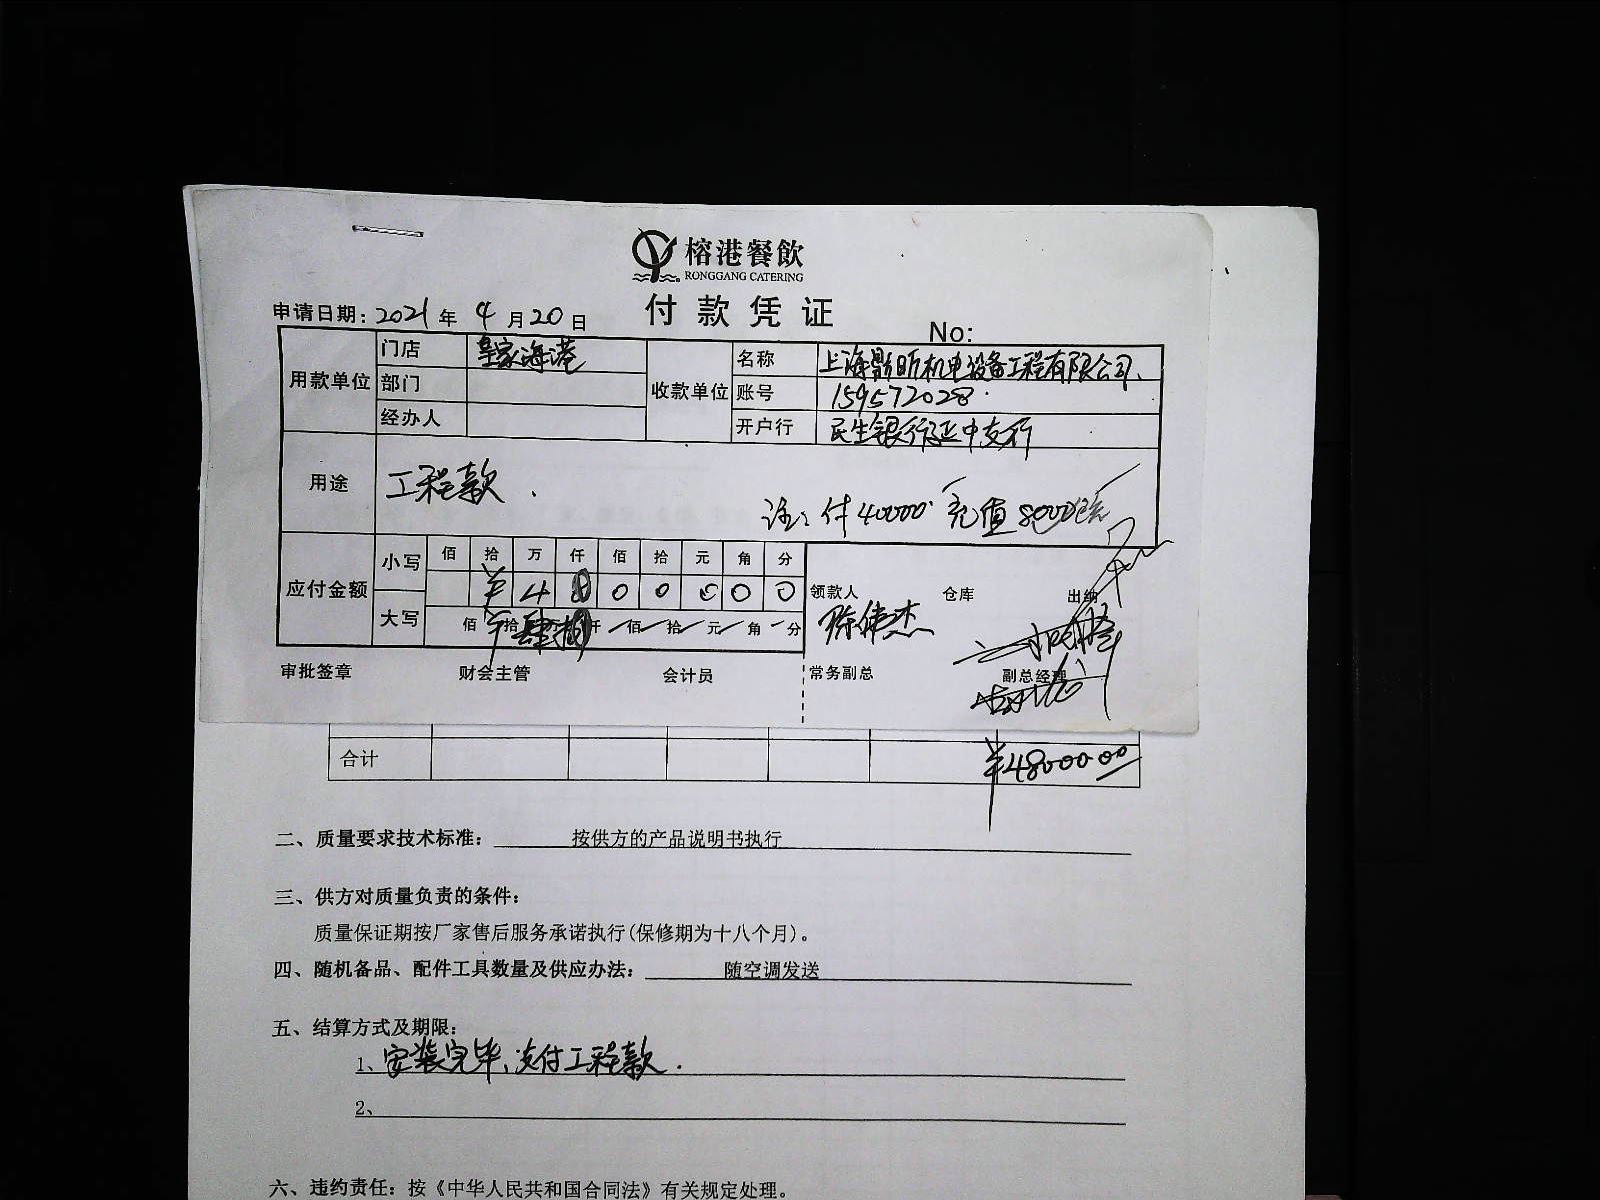 榕港餐飲
RONGGANG CATERING
付款凭证
申请日期：2021年4月20日
No:
用款单位 门店 皇家海港 收款单位 名称 上海 机电设备工程有限公司、
部门 账号 159572028
经办人 开户行 民生银行 中支行
用途 工程款.
注：付40000 充值8000
应付金额 小写 佰 拾 万 仟 佰 拾 元 角 分
¥ 4 8 0 0 0 0 0
大写 佰 拾 肆 捌 仟 佰 拾 元 角 分
领款人 仓库 出纳
陈伟杰
审批签章 财会主管 会计员 常务副总 副总经理
合计 ¥48000.00
二、质量要求技术标准：按供方的产品说明书执行
三、供方对质量负责的条件：
质量保证期按厂家售后服务承诺执行(保修期为十八个月)。
四、随机备品、配件工具数量及供应办法：随空调发送
五、结算方式及期限：
1、安装完毕，支付工程款.
2、
六、违约责任：按《中华人民共和国合同法》有关规定处理。